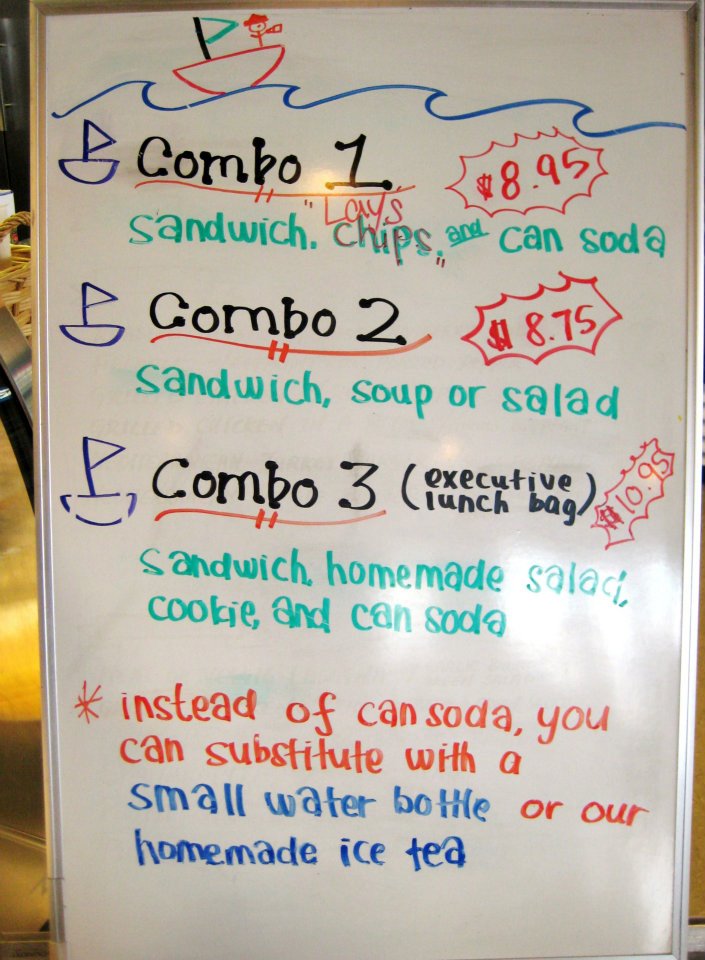 Combo 1 $8.95
"Lay's
sandwich. chips," and can soda
Combo 2 $8.75
sandwich, soup or salad
Combo 3 (executive lunch bag) $10.95
sandwich, homemade salad,
cookie, and can soda
* instead of can soda, you
can substitute with a
small water bottle or our
homemade ice tea